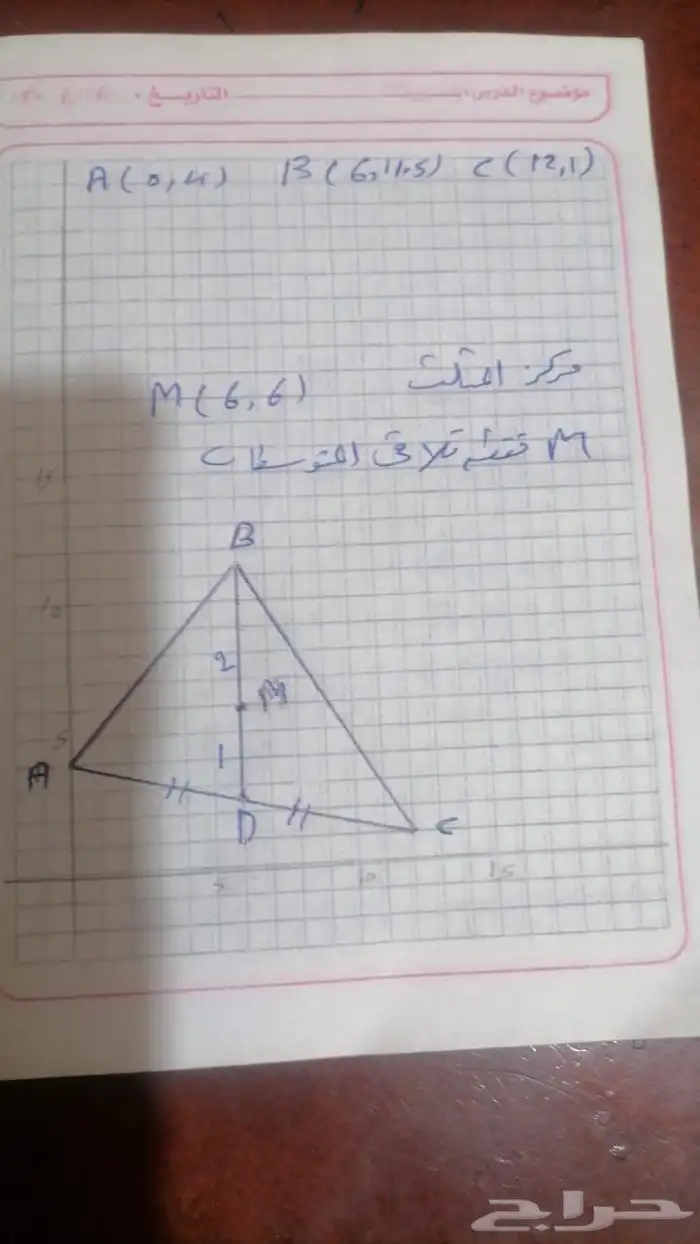 موضوع الدرس: التاريخ:
A(0,4) B(6,11.5) C(12,1)
M(6,6) مركز المثلث
M نقطة تلاقي المتوسطات
B
15
10
2
M
5
1
A
D
C
5 10 15
حراج